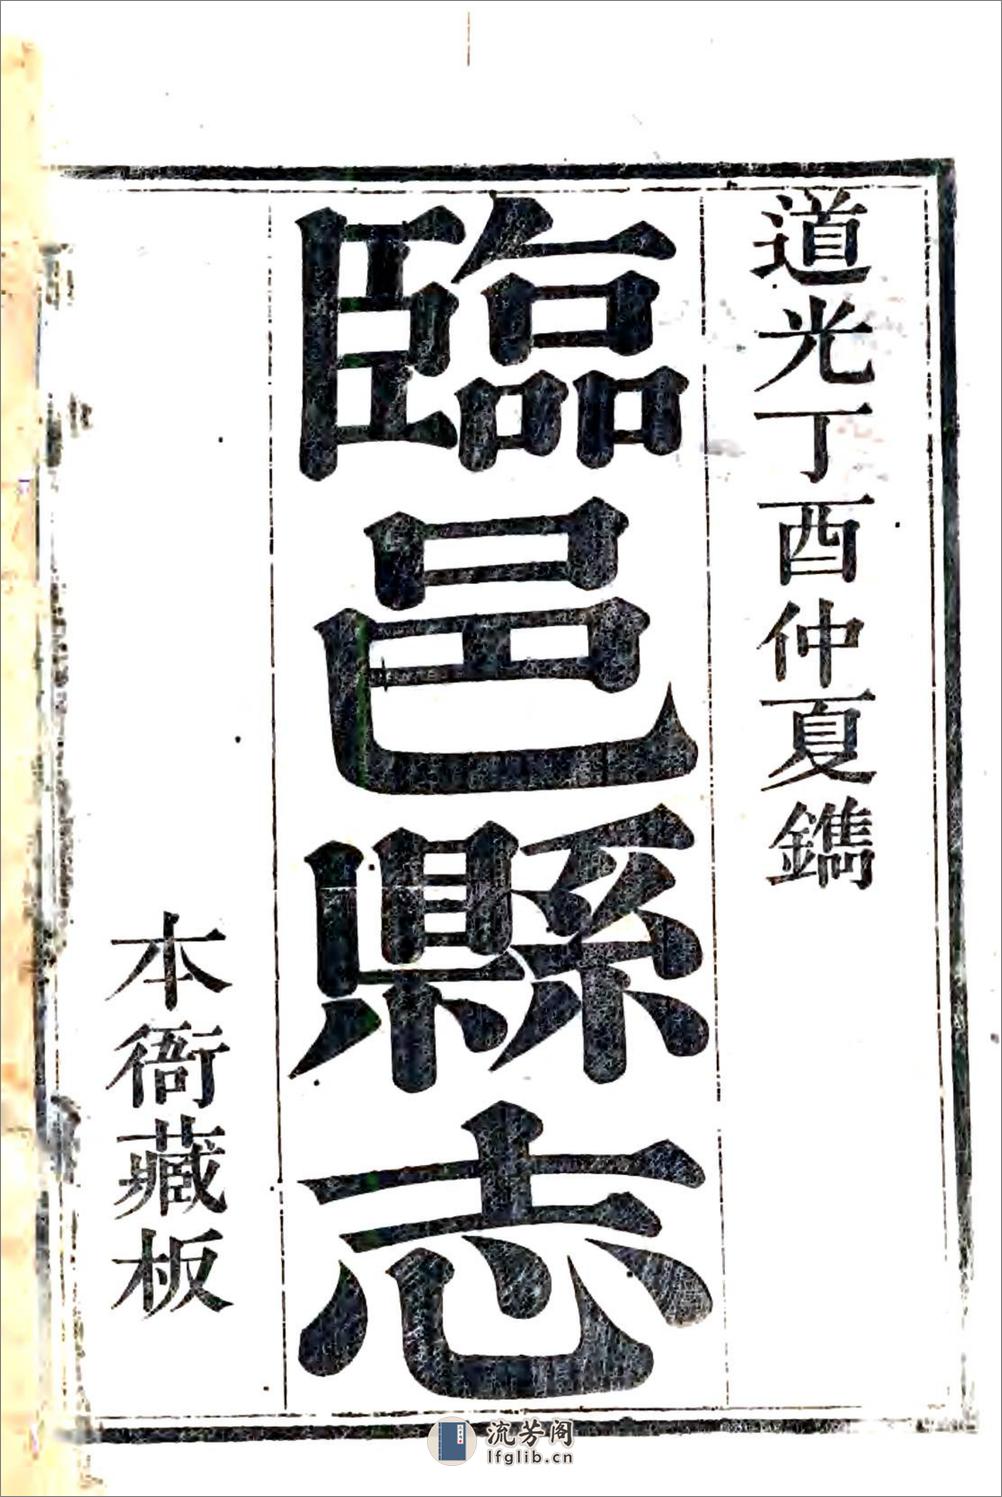 道光丁酉仲夏鐫
臨邑縣志
本衙藏板
流芳阁
lfglib.cn